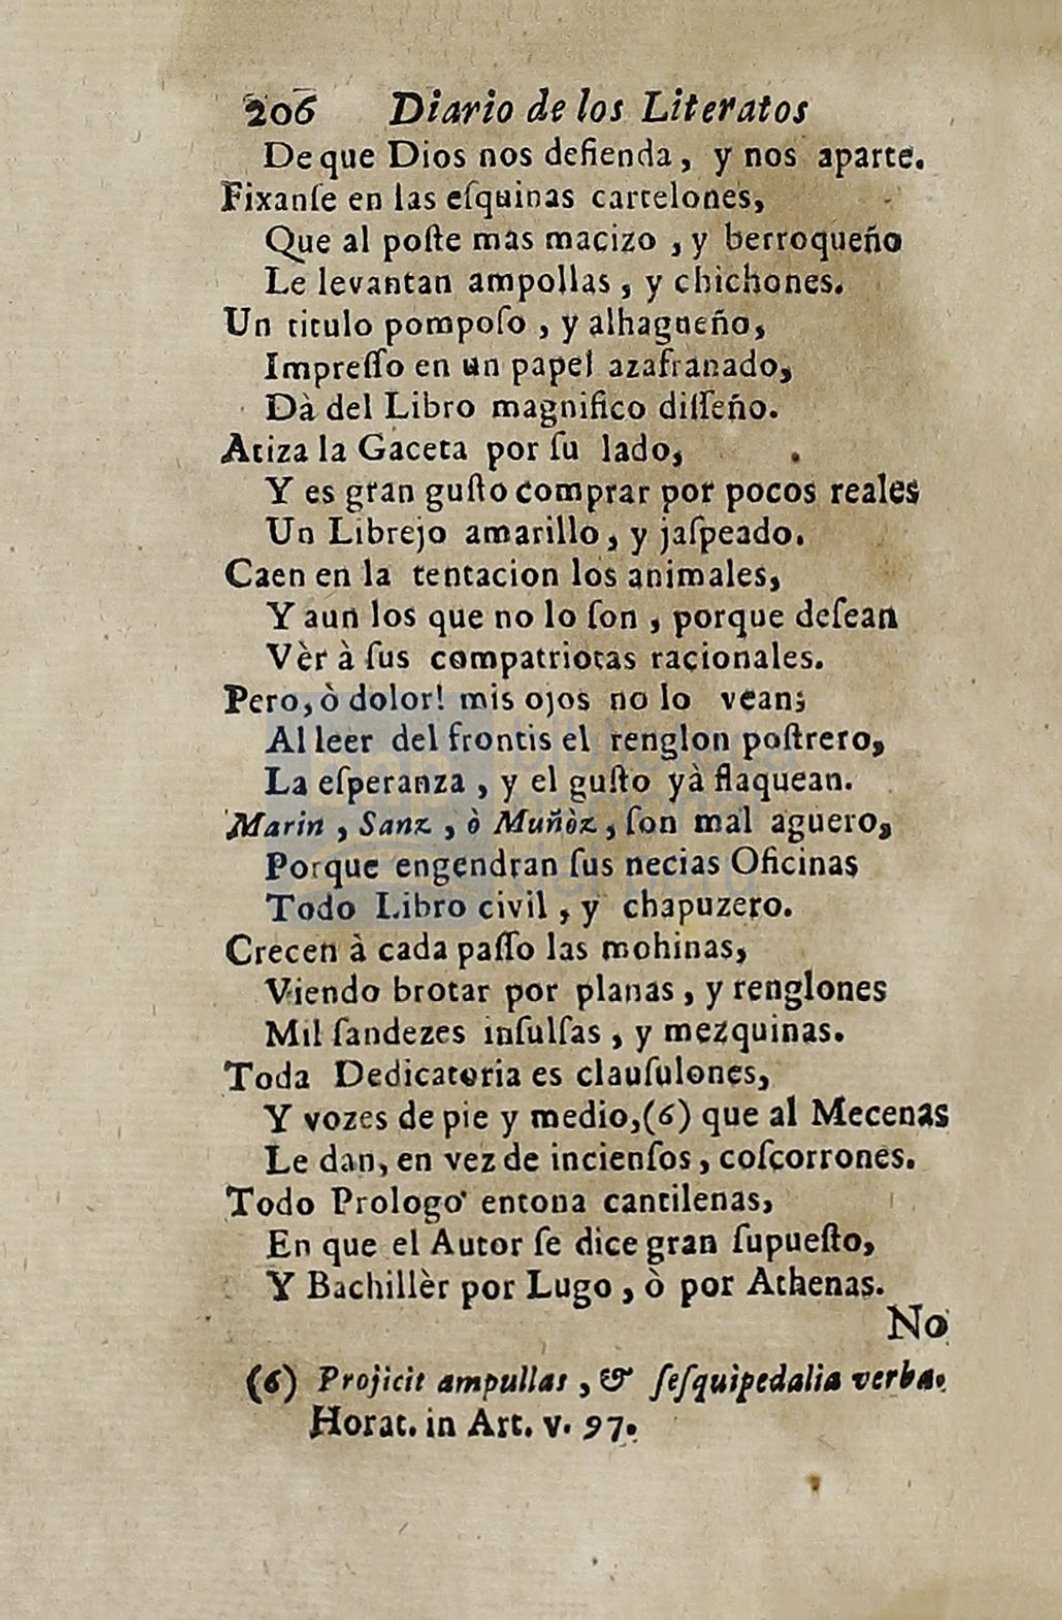 206 Diario de los Literatos
De que Dios nos defienda, y nos aparte.
Fixanſe en las eſquinas cartelones,
Que al poſte mas macizo, y berroqueño
Le levantan ampollas, y chichones.
Un titulo pompoſo, y alhagueño,
Impreſſo en un papel azafranado,
Dà del Libro magnifico diſſeño.
Atiza la Gaceta por ſu lado,
Y es gran guſto comprar por pocos reales
Un Librejo amarillo, y jaſpeado.
Caen en la tentacion los animales,
Y aun los que no lo ſon, porque deſean
Vèr à ſus compatriotas racionales.
Pero, ò dolor! mis ojos no lo vean;
Al leer del frontis el renglon poſtrero,
La eſperanza, y el guſto yà flaquean.
Marin, Sanz, ò Muñòz, ſon mal aguero,
Porque engendran ſus necias Oficinas
Todo Libro civil, y chapuzero.
Crecen à cada paſſo las mohinas,
Viendo brotar por planas, y renglones
Mil ſandezes inſulſas, y mezquinas.
Toda Dedicatoria es clauſulones,
Y vozes de pie y medio,(6) que al Mecenas
Le dan, en vez de incienſos, coſcorrones.
Todo Prologo entona cantilenas,
En que el Autor ſe dice gran ſupueſto,
Y Bachillèr por Lugo, ò por Athenas.
No
(6) Projicit ampullas, & ſeſquipedalia verba.
Horat. in Art. v. 97.